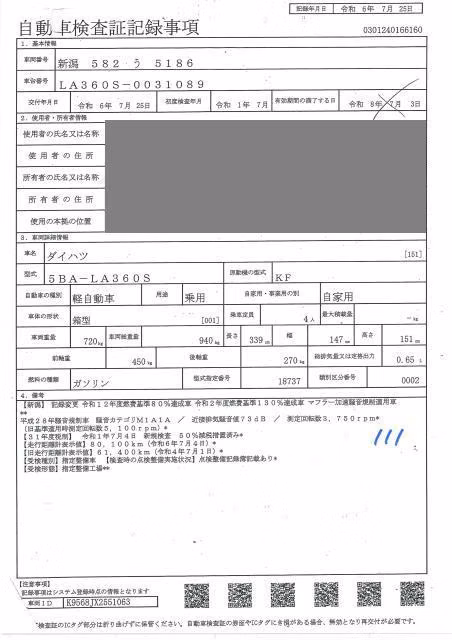 記録年月日 令和 6年 7月 25日
自動車検査証記録事項
0301240166160
1. 基本情報
車両番号 新潟 582 う 5186
車台番号 LA360S-0031089
交付年月日 令和 6年 7月 25日 初度検査年月 令和 1年 7月 有効期間の満了する日 令和 8年 7月 3日
2. 使用者・所有者情報
使用者の氏名又は名称
使用者の住所
所有者の氏名又は名称
所有者の住所
使用の本拠の位置
3. 車両詳細情報
車名 ダイハツ [151]
型式 5BA-LA360S 原動機の型式 KF
自動車の種別 軽自動車 用途 乗用 自家用・事業用の別 自家用
車体の形状 箱型 [001] 乗車定員 4人 最大積載量 -kg
車両重量 720kg 車両総重量 940kg 長さ 339cm 幅 147cm 高さ 151cm
前軸重 450kg 後軸重 270kg 総排気量又は定格出力 0.65 L
燃料の種類 ガソリン 型式指定番号 18737 類別区分番号 0002
4. 備考
【新潟】 記録変更 令和12年度燃費80%達成車 令和2年度燃費基準130%達成車 マフラー加速騒音規制適用車
**
平成28年騒音規制車 騒音カテゴリM1A1A / 近接排気騒音値73dB / 測定回転数3,750rpm*
(旧基準適用時測定回転数5,100rpm)*
【31年度税制】 令和1年7月4日 新規検査 50%減税措置済み*
【走行距離計表示値】80,100km(令和6年7月4日)*
【旧走行距離計表示値】61,400km(令和4年7月1日)*
【受検種別】指定整備車 【検査時の点検整備実施状況】点検整備記録簿記載あり*
【受検形態】指定整備工場**
111
【注意事項】
記載事項はシステム登録時点の情報となります
車両ID K9568JX2551063
*検査証のICタグ部分は折り曲げずに保管ください。自動車検査証の券面やICタグに含損がある場合、無効となり再交付が必要です。